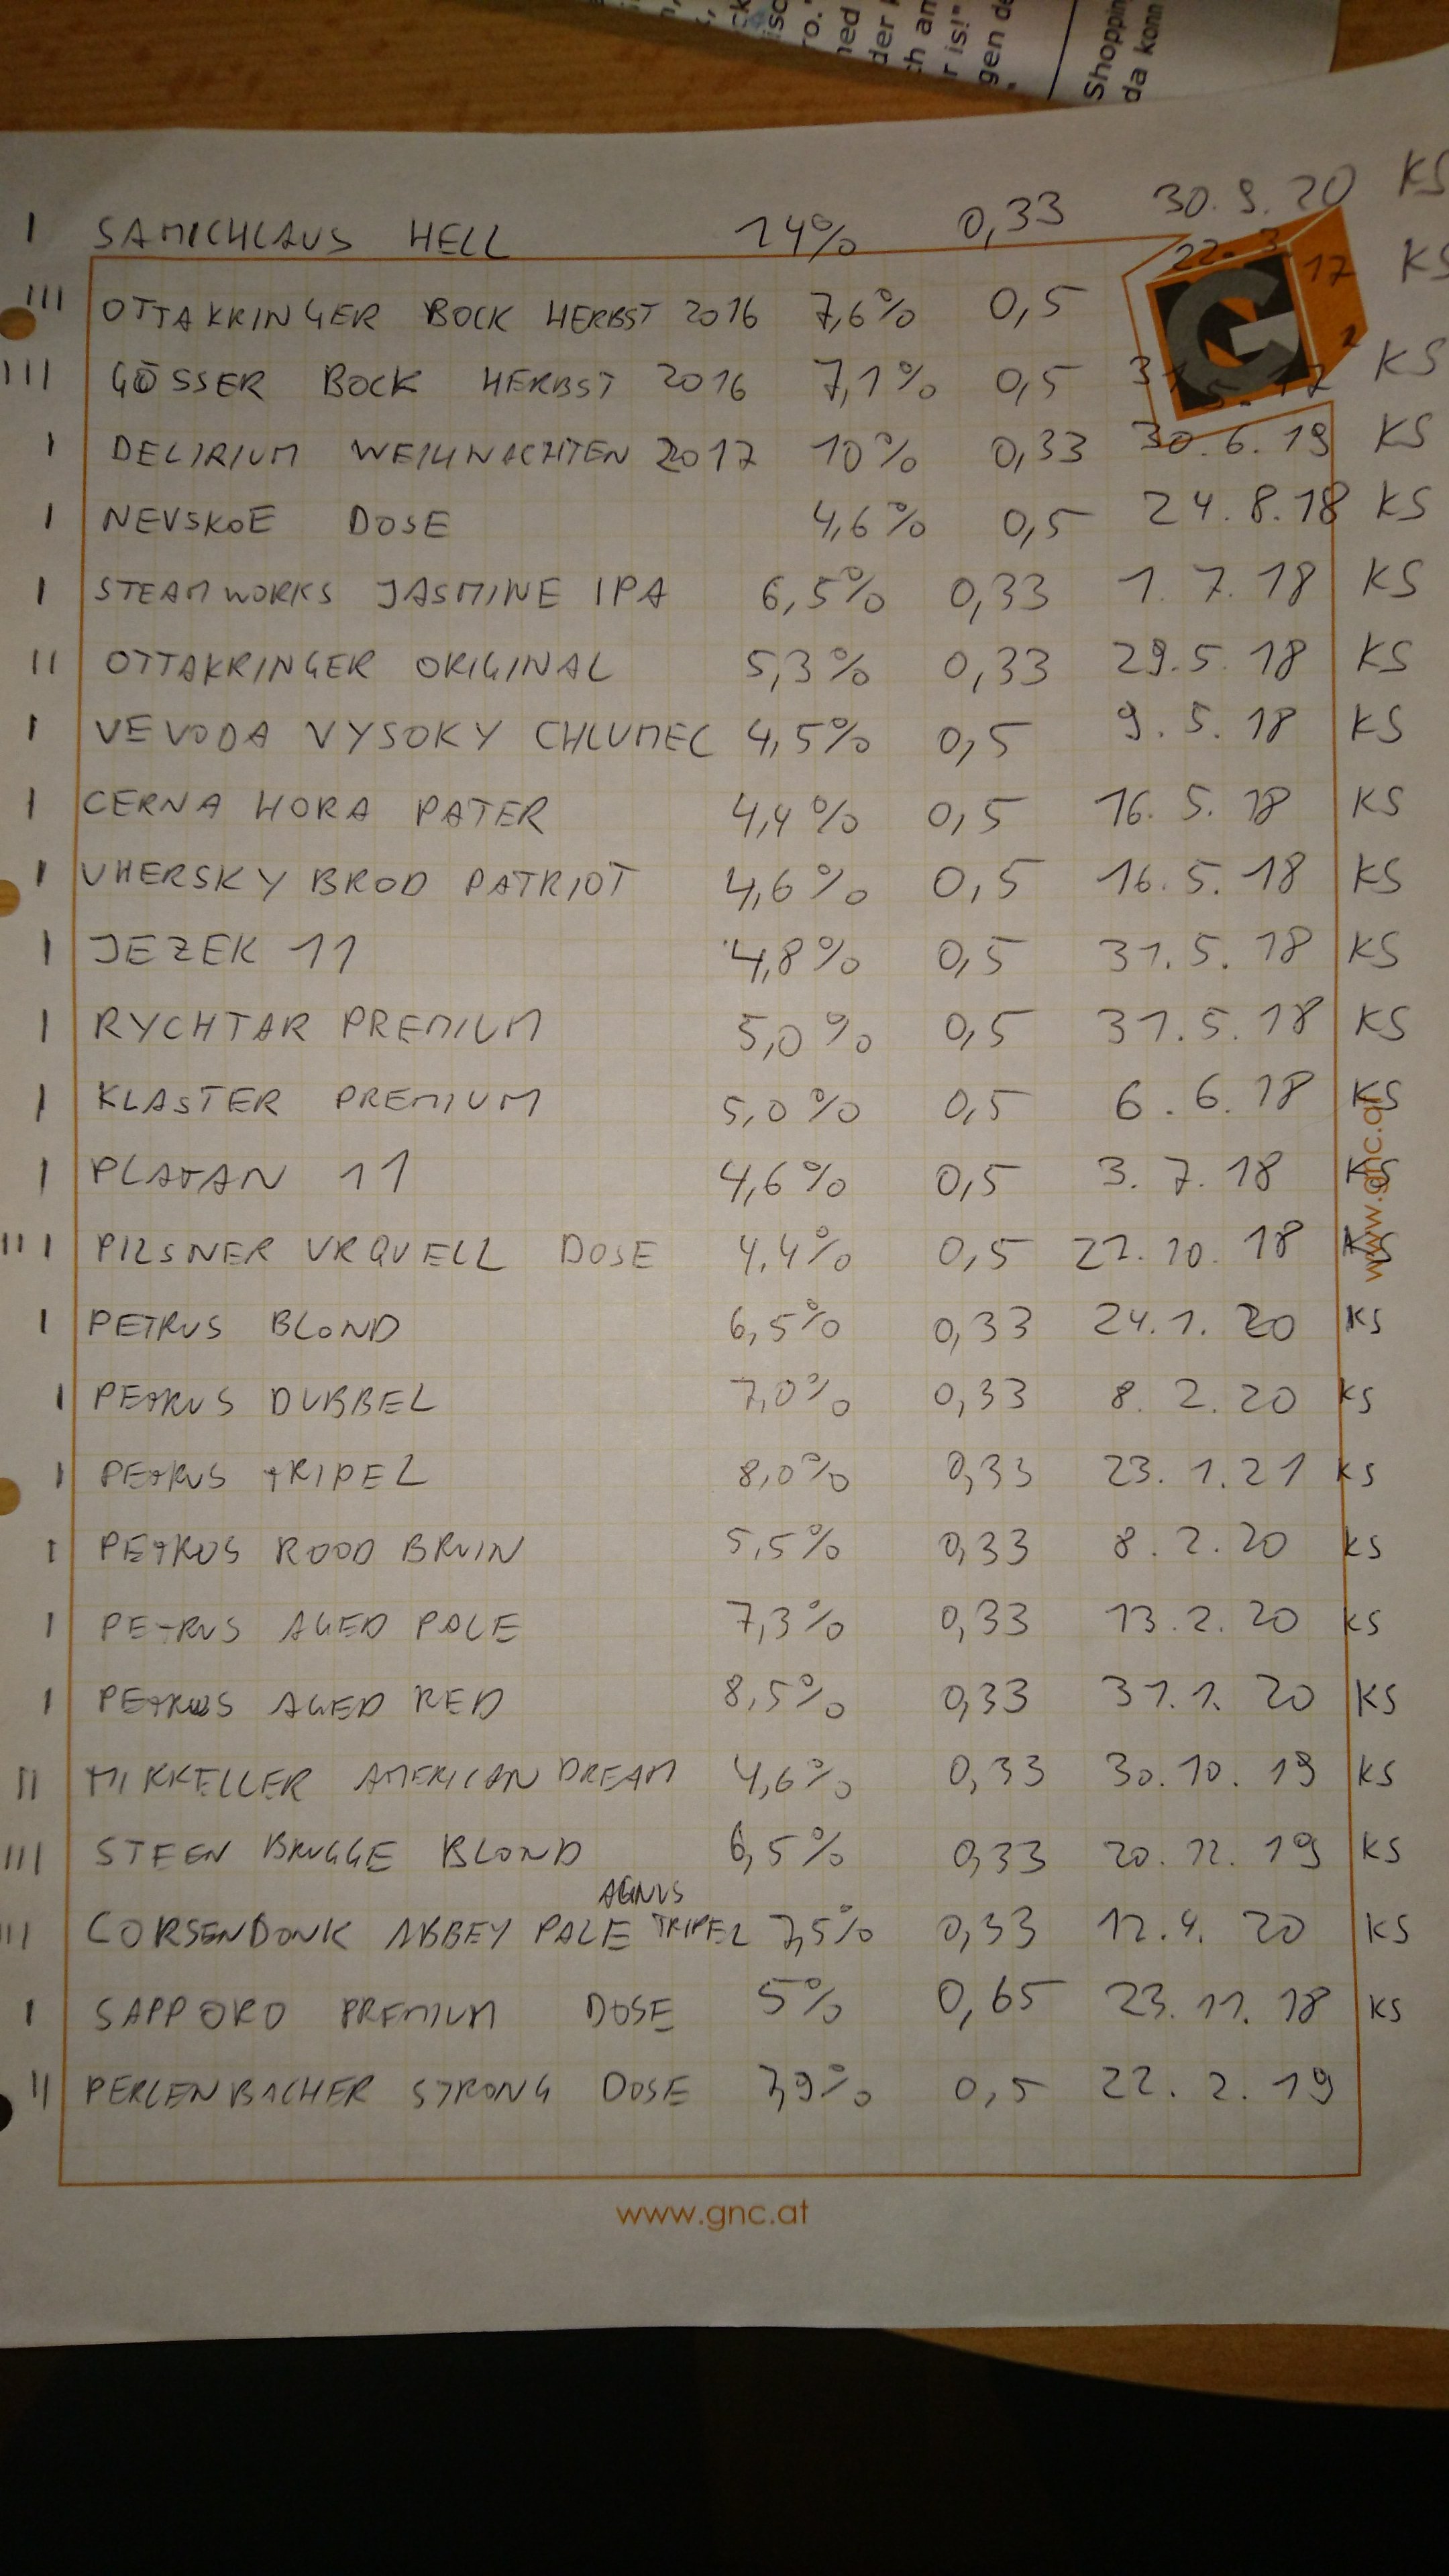 isc
ro.
ned
der
ch am
r is!"
gen de
Shoppin
da konn
I SAMICHLAUS HELL 14% 0,33 30.9.20 KS
III OTTAKRINGER BOCK HERBST 2016 7,6% 0,5 22.3.17 KS
III GÖSSER BOCK HERBST 2016 7,1% 0,5 31.5.17 KS
I DELIRIUM WEIHNACHTEN 2017 10% 0,33 30.6.19 KS
I NEVSKOE DOSE 4,6% 0,5 24.8.18 KS
I STEAMWORKS JASMINE IPA 6,5% 0,33 1.7.18 KS
II OTTAKRINGER ORIGINAL 5,3% 0,33 29.5.18 KS
I VEVODA VYSOKY CHLUMEC 4,5% 0,5 9.5.18 KS
I CERNA HORA PATER 4,4% 0,5 16.5.18 KS
I UHERSKY BROD PATRIOT 4,6% 0,5 16.5.18 KS
I JEZEK 11 4,8% 0,5 31.5.18 KS
I RYCHTAR PREMIUM 5,0% 0,5 31.5.18 KS
I KLASTER PREMIUM 5,0% 0,5 6.6.18 KS
I PLATAN 11 4,6% 0,5 3.7.18 KS
III PILSNER URQUELL DOSE 4,4% 0,5 21.10.18 KS
www.gnc.at
I PETRUS BLOND 6,5% 0,33 24.1.20 KS
I PETRUS DUBBEL 7,0% 0,33 8.2.20 KS
I PETRUS TRIPEL 8,0% 0,33 23.1.21 KS
I PETRUS ROOD BRUIN 5,5% 0,33 8.2.20 KS
I PETRUS AGED PALE 7,3% 0,33 13.2.20 KS
I PETRUS AGED RED 8,5% 0,33 31.1.20 KS
II MIKKELLER AMERICAN DREAM 4,6% 0,33 30.10.19 KS
III STEEN BRUGGE BLOND 6,5% 0,33 20.12.19 KS
AGNUS
III CORSENDONK ABBEY PALE TRIPEL 7,5% 0,33 12.4.20 KS
I SAPPORO PREMIUM DOSE 5% 0,65 23.11.18 KS
II PERLENBACHER STRONG DOSE 7,9% 0,5 22.2.19
www.gnc.at